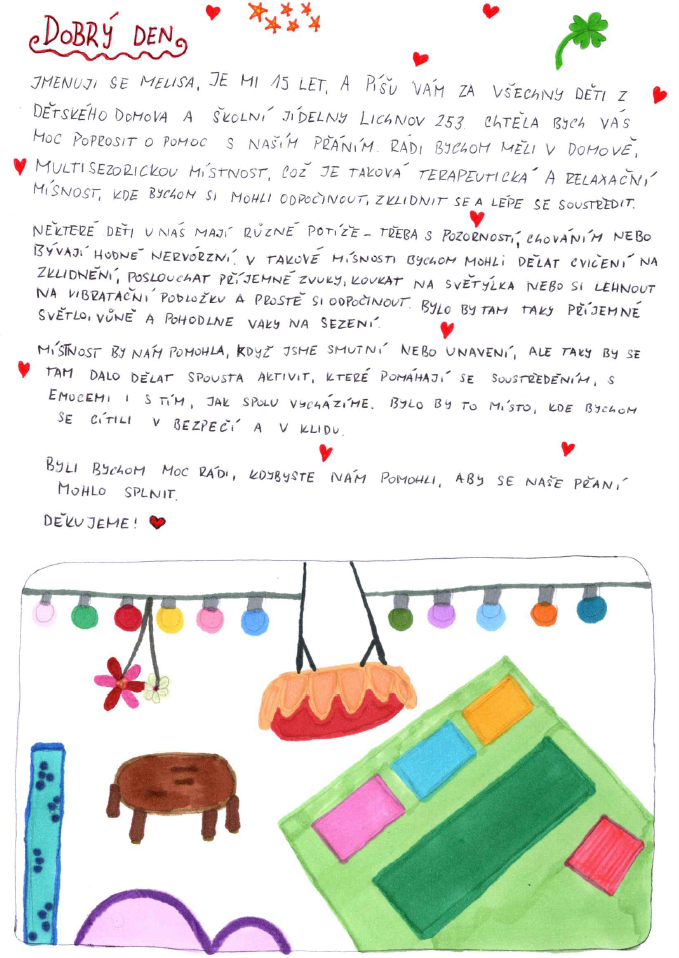 DOBRÝ DEN
JMENUJI SE MELISA, JE MI 15 LET, A PÍŠU VÁM ZA VŠECHNY DĚTI Z
DĚTSKÉHO DOMOVA A ŠKOLNÍ JÍDELNY LICHNOV 253. CHTĚLA BYCH VÁS
MOC POPROSIT O POMOC S NAŠÍM PŘÁNÍM. RÁDI BYCHOM MĚLI V DOMOVĚ,
MULTISEZORICKOU MÍSTNOST, COŽ JE TAKOVÁ TERAPEUTICKÁ A RELAXAČNÍ
MÍSNOST, KDE BYCHOM SI MOHLI ODPOČINOUT, ZKLIDNIT SE A LÉPE SE SOUSTŘEDIT.
NĚKTERÉ DĚTI U NÁS MAJÍ RŮZNÉ POTÍŽE – TŘEBA S POZORNOSTÍ, CHOVÁNÍM NEBO
BÝVAJÍ HODNĚ NERVÓRZNÍ. V TAKOVÉ MÍSNOSTI BYCHOM MOHLI DĚLAT CVIČENÍ NA
ZKLIDNĚNÍ, POSLOUCHAT PŘÍJEMNÉ ZVUKY, KOUKAT NA SVĚTÝLKA NEBO SI LEHNOUT
NA VIBRATAČNÍ PODLOŽKU A PROSTĚ SI ODPOČINOUT. BYLO BY TAM TAKY PŘÍJEMNÉ
SVĚTLO, VŮNĚ A POHODLNE VAKY NA SEZENÍ.
MÍSTNOST BY NÁM POMOHLA, KDYŽ JSME SMUTNÍ NEBO UNAVENÍ, ALE TAKY BY SE
TAM DALO DĚLAT SPOUSTA AKTIVIT, KTERÉ POMÁHAJÍ SE SOUSTŘEDĚNÍM, S
EMOCEMI I S TÍM, JAK SPOLU VYCHÁZÍME. BYLO BY TO MÍSTO, KDE BYCHOM
SE CÍTILI V BEZPEČÍ A V KLIDU.
BYLI BYCHOM MOC RÁDI, KDYBYSTE NÁM POMOHLI, ABY SE NAŠE PŘANÍ
MOHLO SPLNIT.
DĚKUJEME!